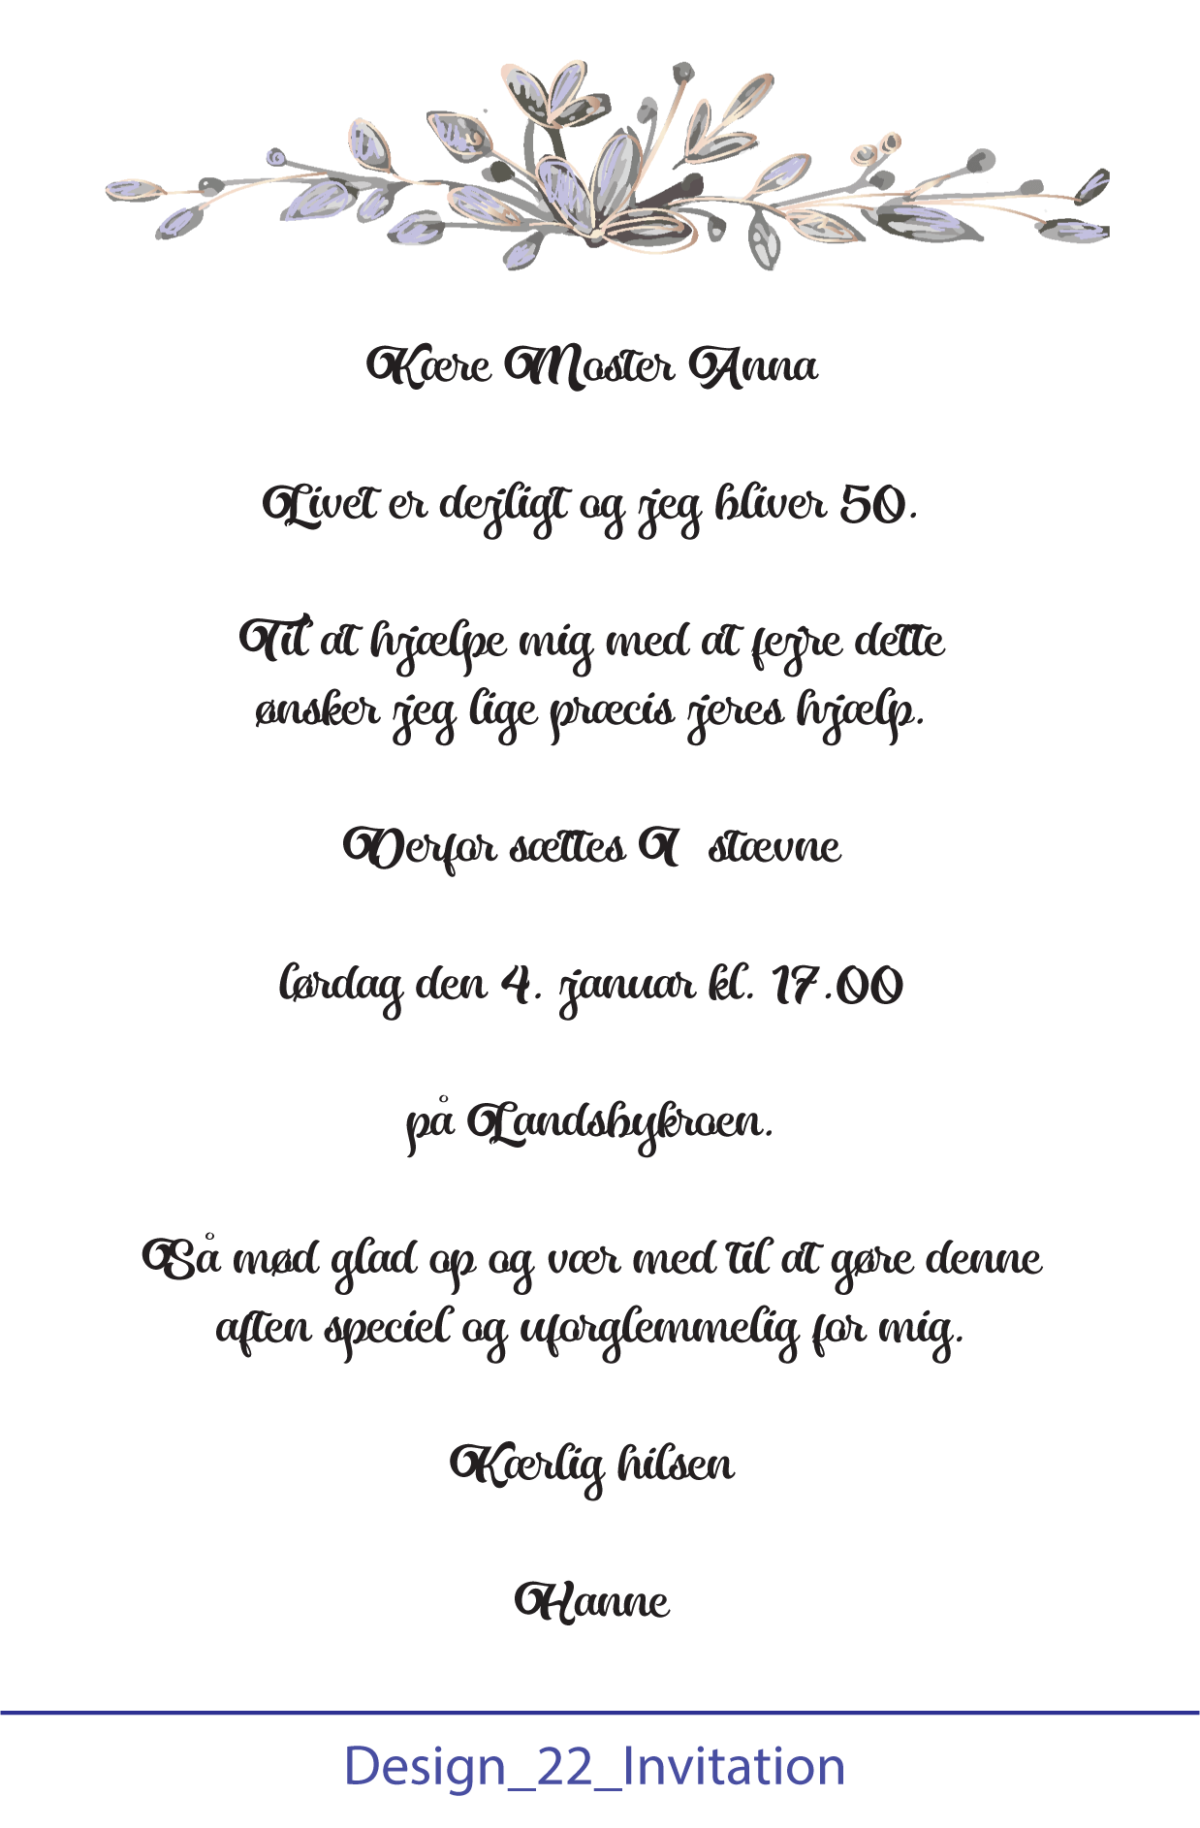 Kære Moster Anna
Livet er dejligt og jeg bliver 50.
Til at hjælpe mig med at fejre dette
ønsker jeg lige præcis jeres hjælp.
Derfor sættes I stævne
lørdag den 4. januar kl. 17.00
på Landsbykroen.
Så mød glad op og vær med til at gøre denne
aften speciel og uforglemmelig for mig.
Kærlig hilsen
Hanne
Design_22_Invitation